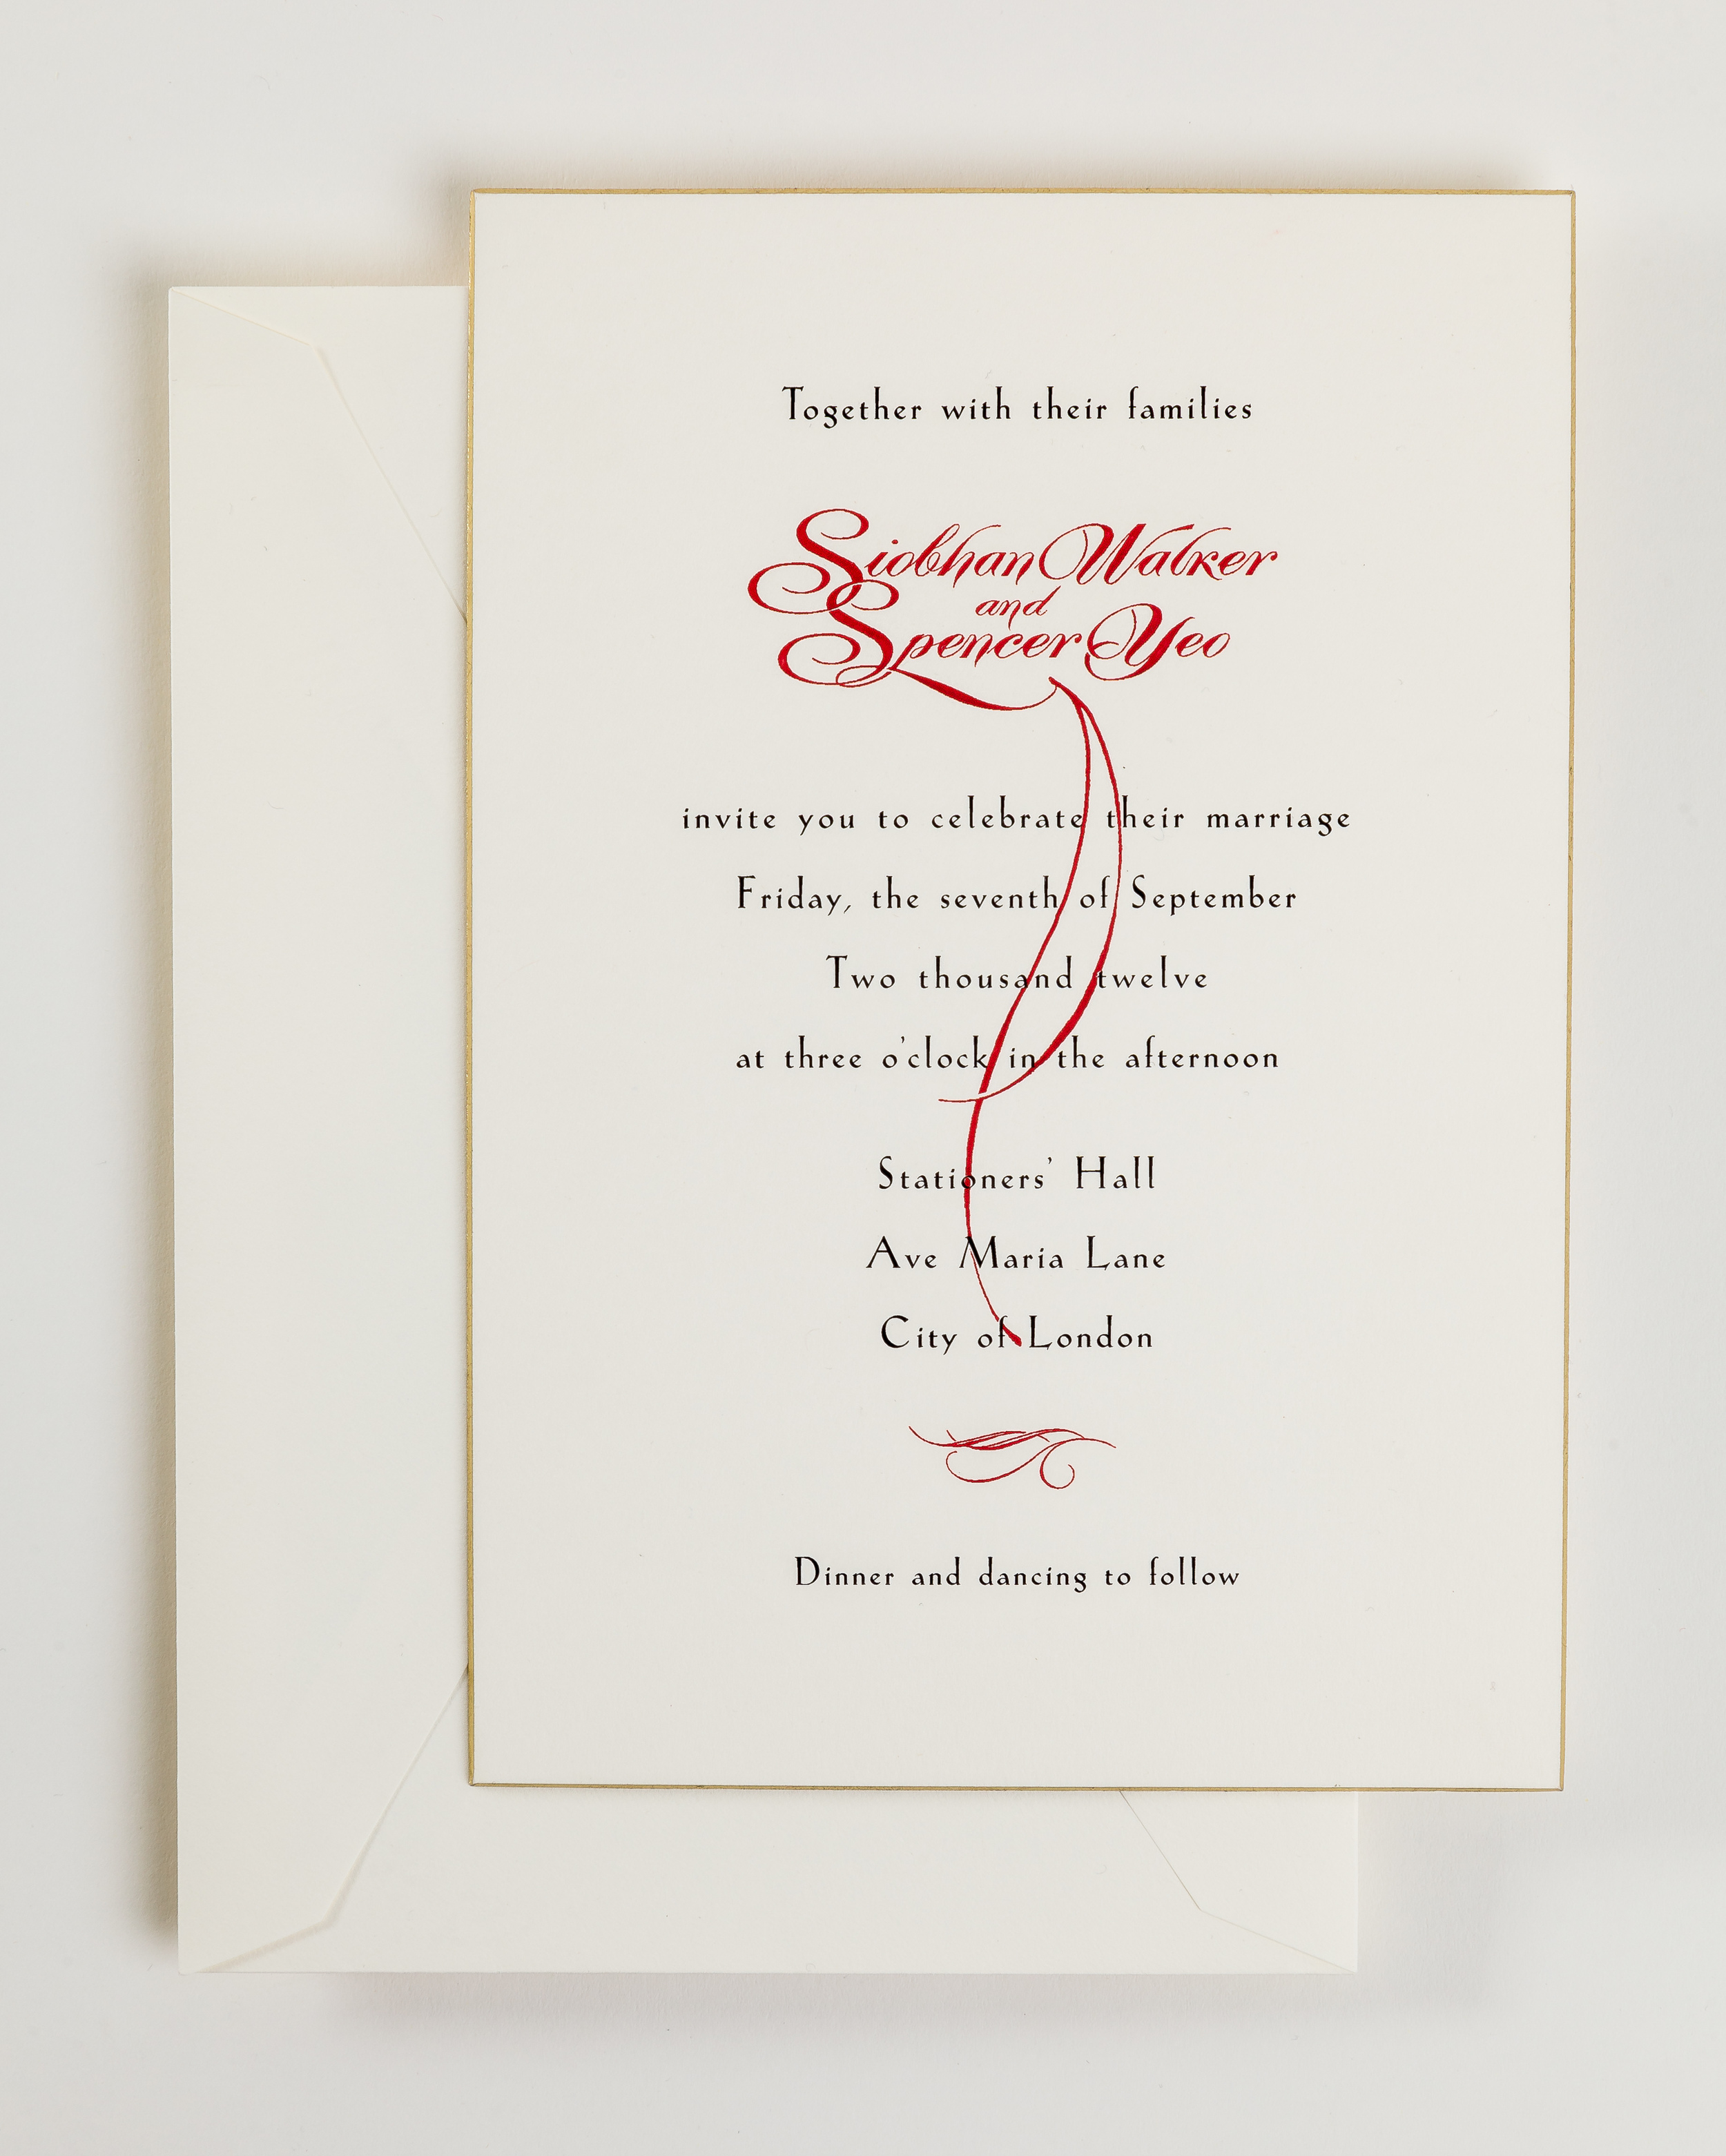 Together with their families
Siobhan Walker
and
Spencer Yeo
invite you to celebrate their marriage
Friday, the seventh of September
Two thousand twelve
at three o'clock in the afternoon
Stationers' Hall
Ave Maria Lane
City of London
Dinner and dancing to follow